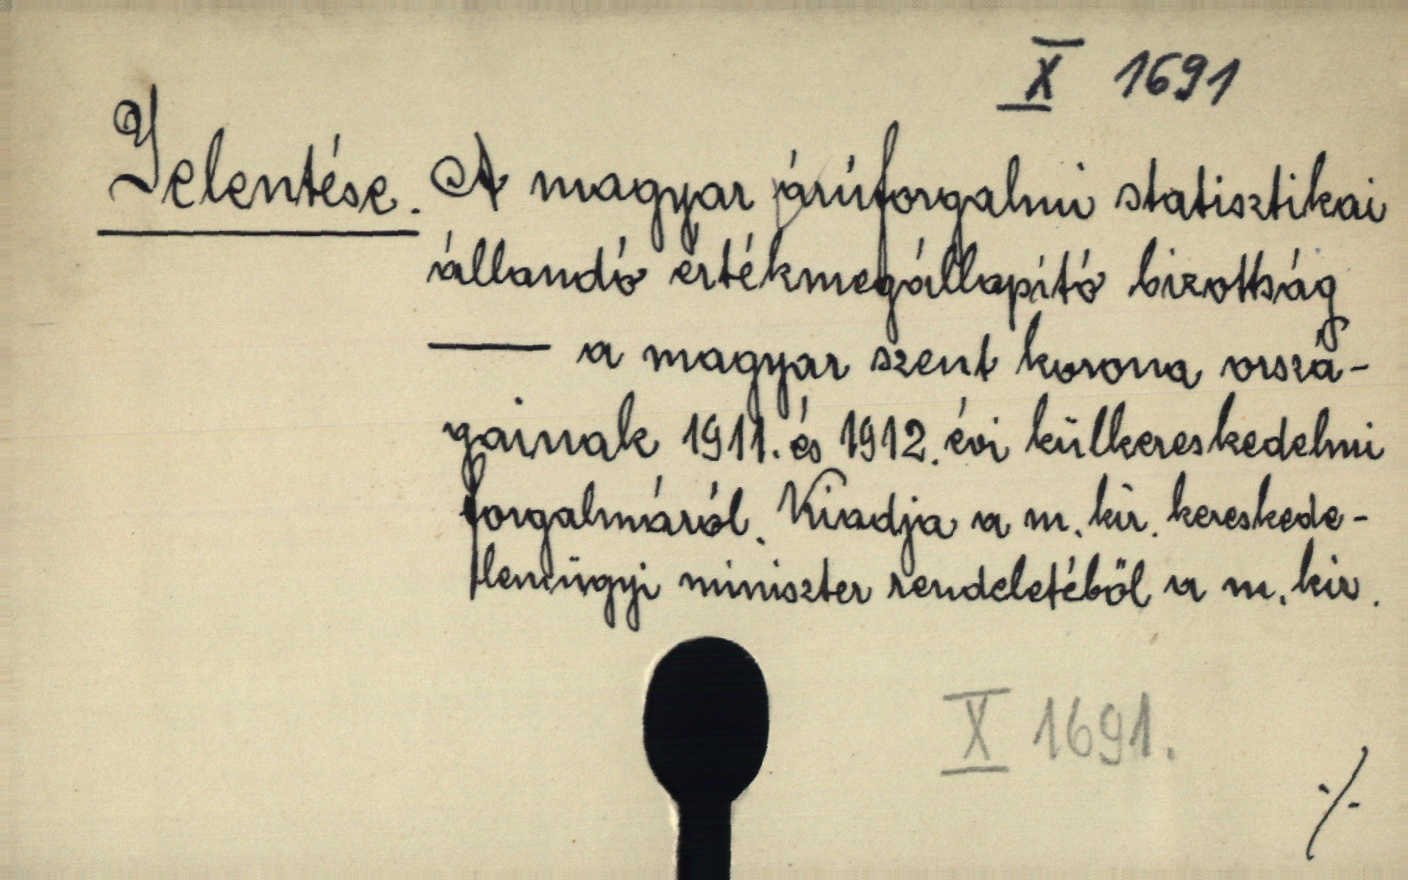 X 1691
Jelentése. A magyar árúforgalmi statisztikai
állandó értékmegállapító bizottság
—— a magyar szent korona orszá-
gainak 1911. és 1912. évi külkereskedelmi
forgalmáról. Kiadja a m. kir. kereskede-
lemügyi miniszter rendeletéből a m. kir.
X 1691.
./.